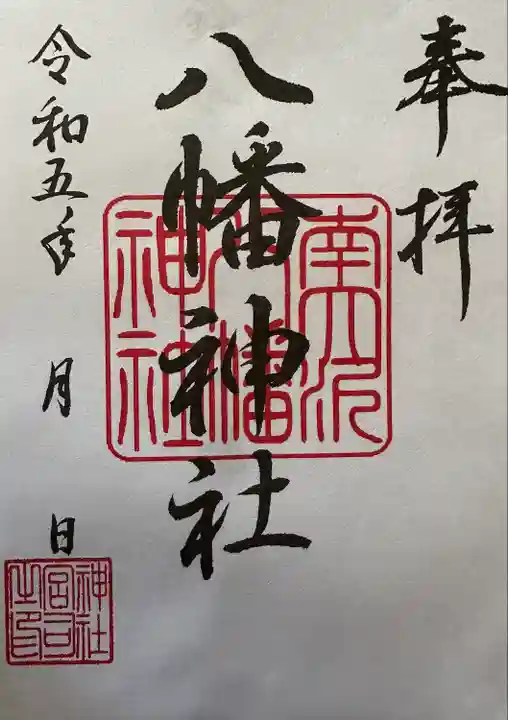 奉拝
八幡神社
令和五年 月 日
南大沢
八幡
神社
神社
宮司
之印